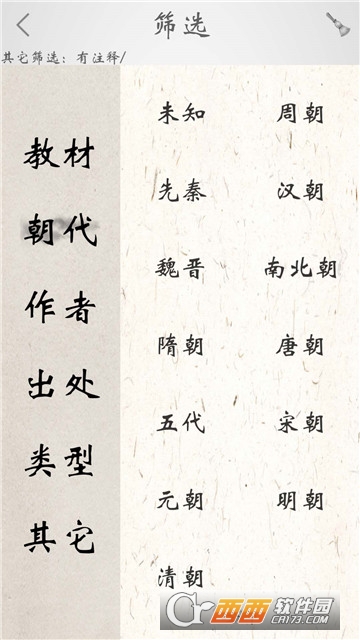 筛选
其它筛选：有注释/
教材
朝代
作者
出处
类型
其它
未知 周朝
先秦 汉朝
魏晋 南北朝
隋朝 唐朝
五代 宋朝
元朝 明朝
清朝
西西软件园
CR173.COM